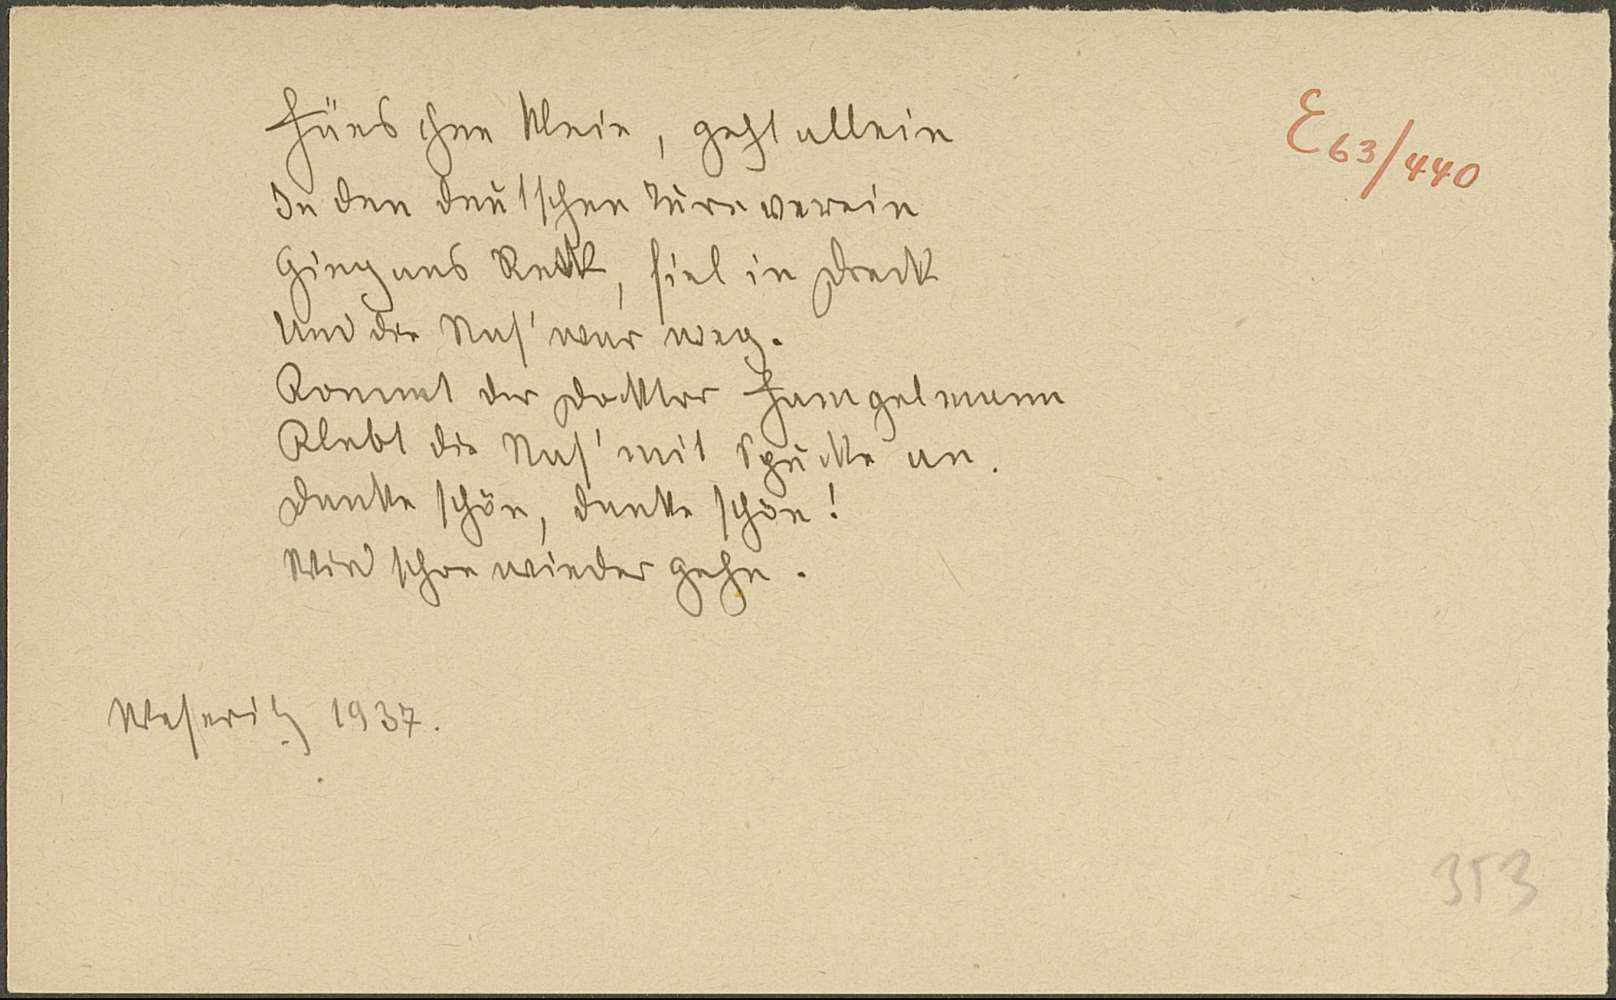 Häns chen klein, geht allein
E 63/440
In den deutschen Turnverein
Ging ans Reck, fiel in Dreck
Und die Nas' war weg.
Kommt der Doktor Hampelmann
Klebt die Nas' mit Spucke an.
Danke schön, danke schön!
Wird schon wieder gehn.
Weseritz 1937.
353